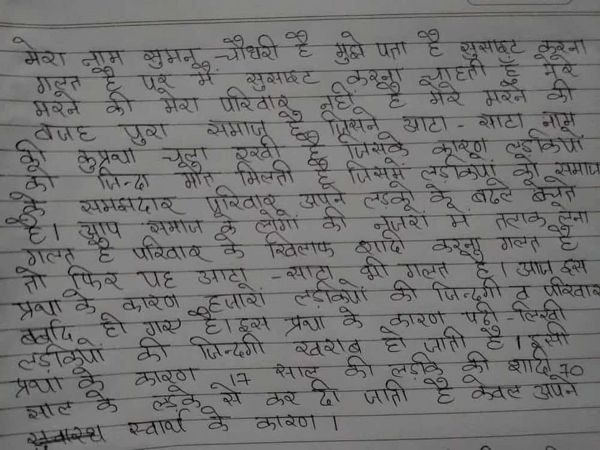 मेरा नाम सुमन चौधरी है मुझे पता है सुसाइट करना
गलत है पर मैं सुसाइट करना चाहती हूँ मेरे
मरने की मेरा परिवार नहीं है मेरे मरने की
वजह पुरा समाज है जिसने आटा-साटा नाम
की कुप्रथा चला रखी है जिसके कारण लड़कियों
को जिन्दा मौत मिलती है जिसमें लड़कियों को समाज
के समझदार परिवार अपने लड़के के बदले बेचते
है। आप समाज के लोगों की नजरों में तलाक लेना
गलत है परिवार के खिलाफ शादि करना गलत है
तो फिर यह आटा-साटा भी गलत है। आज इस
प्रथा के कारण हजारों लड़कियों की जिन्दगी व परिवार
बर्बाद हो गए है। इस प्रथा के कारण पढ़ी-लिखी
लड़कीयों की जिन्दगी खराब हो जाती है। इसी
प्रथा के कारण 17 साल की लड़कि की शादि 70
साल के लड़के से कर दी जाती है केवल अपने
स्वार्थ के कारण।